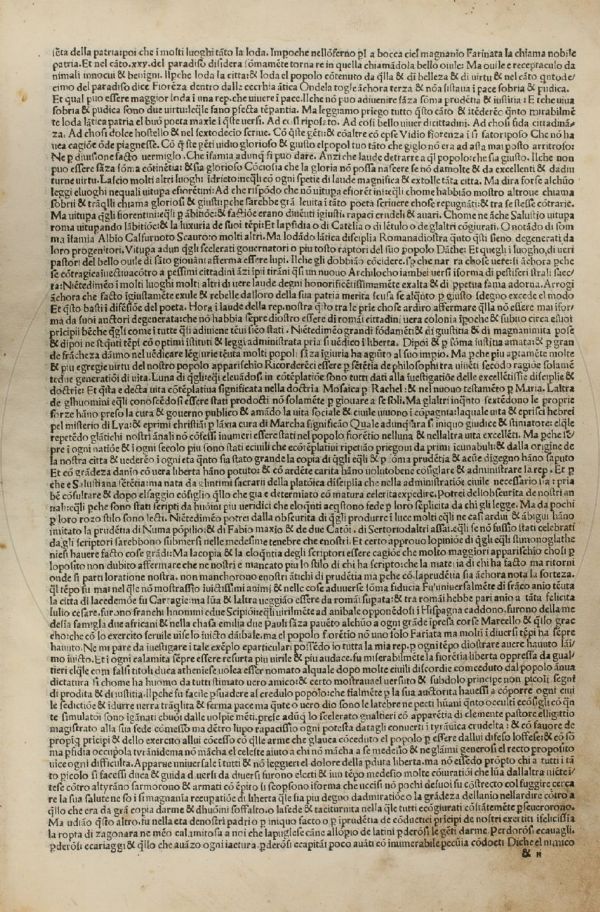 della patria poi che i molti luoghi tāto la loda. Impoche nelloferno p la bocca del magnanio Farinata la chiama nobile
patria. Et nel cāto .xxv. del paradiso disidera sōmamēte tornare in quella chiamādola bello ouile: Ma ouile e receptaculo da
nimali innocui & benigni. Ilpche loda la citta: & loda el popolo cōtenuto da qlla & di belleza & di uirtu & nel cāto qntode/
cimo del paradiso dice Fiorēza dentro dalla cerchia ātica Ondela togle āchora terza & nōa sistaua i pace sobria & pudica.
Et qual puo essere maggior loda i una rep. che uiuere i pace.
sobria & pudica sono due uirtu Ma leggiamo priego tutto qsto cāto & itēderēo qnto mirabilmē
te loda lātica patria el buō poeta maxie i qste uersi. Ad cosi riposato. Ad cosi bello uiuer di cittadini. Ad cosi fida cittadinā/
za. Ad chosi dolce hostello & nel sextodecio scriue. Cō qste gēti: & cō altre cō epse Vidio fiorenza i si facto riposo Che nō ha
uea cagiōe ōde piagnesse. Cō qste gēti uidio glorioso & giusto el popol tuo tāto che giglo nō era ad asta mai posto arritroso:
Ne p diuisione facto uermiglo. Che ifamia adunq si puo dare. Anzi che laude detrarre a ql popolo: che sia giusto. Ilche non
puo essere sāza sōma cōtinētia: & sia glorioso Cōciosia che la gloria nō possa nascere se nō da molte & da excellenti & dadiu
turne uirtu. Lascio molti altri luoghi idrieto: neqli cō ogni spetie di laude magnifica & extolle tāta citta. Ma dira forse alchūo
leggi luoghi nequali uitupa efioretini: Ad che rispōdo che nō uitupa efiorētini: eqli chome habbiao mostro altroue chiama
sobrii & trāqlli chiama gloriosi & giusti: pche sarebbe grā leuita i tāto poeta scriuere chose repugnāti: & tra se stesse cōtrarie.
Ma uitupa qgli fiorentini: eqli p ābitōe: & factiōe erano diuēnti igiusti. rapaci crudeli & auari. Chome ne āche Salustio uitupa
roma uitupando lābitiōe: & la luxuria de suoi tēpi: Et lapfidia o di Catelia o di lētulo o deglaltri cōgiurati. O notādo di som
ma ifamia Albio Calfurnoeto Scauroeto molti altri. Ma lodādo lātica disciplia Romana
loro progenitori. Vitupa adunq gli scelerati gouernatori o piu tosto raptori del suo popolo Dāthe: Et quegli i luogho, di ueri
pastori del bello ouile di sāto giouāni afferma essere lupi.
ra: Niētedimeo i molti luoghi molti altri di uere laude degni honorificētissimamēte exalta & di ppetua fama adorna. Arrogi
āchora che facto igiustamēte exule & rebelle dalloro della sua patria merita scusa se alqnto p giusto sdegno excede el modo
Et qsto basti i difesiōe del poeta. Hora i laude della rep. nostra qsto tra le prie chose ardiro affermare qlla nō essere mai ifor
ma da suoi auctori degenerata: che nō habbia sepre dimostro essere di romāi cittadini uera colonia
pricipii bēche qgli come i tutte qli adiuiene tēui siēo stati. Niētedimeo grandi fōdamēti & di giustitia & di magnanimita pose
& dipoi ne sqnti tēpi cō optimi istituti & leggi administrata pria si uēdico i liberta. Dipoi & p sōma iustitia amata: & p gran
de frācheza dāmo nel uēdicare le giurie tēuta molti popoli sāza igiuria ha agiūto al suo impio. Ma pche piu aptamēte molte
& piu egregie uirtu del nostro popolo apparischio Ricorderēci essere p sētētia de philosophi tra uiuēti secōdo ragiōe solamē
te due generatiōi di uita. Luna di qgli: eqli eleuādosi in cōtēplatiōe sono tutti dati alla iuestigatiōe delle excellētissime discipliē &
doctrie: Et qsta e decta uita cōtēplatiua significata nella doctria Mosaica p Rachel: & nel nuouo testamēto p Maria. Laltra
de glhuomini eqli conoscēdosi essere stati prodocti nō solamēte p giouare a se soli. Ma glaltri inqnto sextēdono le proprie
forze hāno preso la cura & gouerno publico & amādo la uita sociale & ciuile uiuono i cōpagnia: laquale uita & eprisci hebrei
pel misterio di Lya: & eprimi christiāi p lāxia cura di Marcha significāo Quale adunq sara si iniquo giudice & stimatore: elqle
repetēdo glātichi nostri ānali nō cōfessi inumeri essere stati nel popolo fiorētio nelluna & nellaltra uita excellēti. Ma pche sē/
pre i ogni natiōe & i ogni secolo piu sono stati ciuili che cōtēplatiui riperiāo priegoui da primi icunabuli: & dalla origine de
la nostra citta & uedrēo i ogni eta qnto sia stato grande la copia di qgli eqli & p sōma prudētia & aeste digegno hāno saputo
Et cō grādeza danio cō uera liberta hāno potuto: & cō ardēte carita hāno uoluto bene cōsiglare & administrare la rep. Et p
che e Salustiana sētētia: ma nata da glintimi sacrarii della platōica discipliā che nella administratiōe ciuile necessario sia: pria
bē cōsultare & dopo elsaggio cōsiglio qllo che gia e determiato cō matura celerita expedire. Potrei della obscurita de nostri an
nali: eqli pche sono stati scripti da huōini piu ueridici che eloqnti acqstono fede p loro sēplicita da chi gli legge. Ma da pochi
p loro rozo stilo sono lecti. Niētedimeo potrei dalla obscurita di qgli produrre i luce molti eqli ne casi ardui & ābigui hāno
imitato la prudētia di Numa pōpilio: & di Fabio maxio & de due Catōi. di Sertorio daltri assai. eqli se nō fussio stati celebrati
da gli scriptori sarebbono submersi nelle medesime tenebre che enostri. Et certo approuo lopiniōe di qgli eqli stimono glathe
niesi hauere facto cose grādi: Ma la copia & la eloqntia degli scriptori essere cagiōe che molto maggiori apparischio chosi p
loposito non dubito affermare che ne nostri e mancato piu lo stilo di chi ha scripto: che la materia di chi ha facto: ma ritorni
onde si parti loratione nostra. non manchorono enostri ātichi di prudētia ma pche cō laprudētia sia āchora nota la forteza.
ql tēpo fu mai nel qle nō mostrassio iuictissimi animi & nelle cose aduuerse sōma fiducia Fu uniuersalmēte di frāco anio tēuta
la citta di lacedemōe fu Cartagie: ma lūa & laltra ueggiāo essere da romāi supata: & tra romāi hebbe pari anio a tāta felicita
iulio cesare. furono frāchi huomini edue Scipiōi: eqli uirilmēte ad anibale opponēdosi i Hispagna caddono. furono della me
desia famigla due africani & nella chasa emilia due Pauli sāza pauēto alchūo a ogni grāde ipresa corse Marcello & qllo grac
cho: che cō lo exercito seruile uise lo iuicto dāibale. ma el popolo fiorētio nō uno solo Fariata ma molti i diuersi tēpi ha sēpre
hauuto. Ne mi pare da iuestigare i tale exēplo eparticulari possēdo io tutta la mia rep. p ogni tēpo diostrare auere hauuto lāi/
mo iuicto. Et i ogni calamita sēpre essere resurta piu uirile & piu audace. fu miserabilmēte la fiorētia liberta oppressa da qual/
tieri elqle con falsi titoli duca atheniese uolea esser nomato alquale dopo molte ciuili discordie cōceduto dal popolo ānua
dictatura si chome la hauuto da tutti stimato uero amico: & certo mostraua el uersuto & subdolo principe non picoli segni
di prodita & di iustitia. Ilpche fu facile psuadere al credulo popolo: che fialmēte p la sua auctorita hauessi a cōporre ogni ciui
le seditiōe & idurre uera trāqlita & ferma pace ma qnte o uero dio sono le latebre ne pecti hūani qnto occulti ecōsigli cō qn
te simulatōi sono igānati ebuōi dalle uolpie mēti. prese adūq lo scelerato qualtieri cō apparētia di clemente pastore elligittio
magistrato alla sua fede cōmesso ma dētro lupo rapacissio ogni potesta datagli conuerti i tyrānica crudelta: & cō fauore de
propiq pricipi & dello exercito allui cōcesso cō qlle arme che glauea cōceduto el popolo p essere dallui difeso loffese: & cō sō
ma pfidia occupo la tyrānide ma nō mācha el celeste aiuto a chi nō māca a se medesio & ne glāimi generosi el recto proposito
uice ogni difficulta. Apparue uniuersale i tutti & nō leggieri el dolore della pduta liberta. ma nō essēdo propto chi a tutti i tā
to picolo si facessi duca & guida diuersi da diuersi furono electi & i un tēpo medesio molte cōiuratiōi che lūa dallaltra niēte i/
tese cōtro altyrāno sarmorono & armati cō epito si scopsono iforma che uccisi nō pochi de suoi fu costrecto col suggire cerca
re la sua salute ne so i si magnania recuptiōe di liberta
qllo che era da grā copia darme & dhuōini soffalto. o la fede & taciturnita nella qle tutti ecōgiurati cōstātemēte pseuerorono.
Ma udiāo qsto altro. fu nella eta denostri padri o p iniquo facto o p iprudētia de cōductieri pricipi de nostri exerciti ifelicissia
la ropta di zagonara ne meo calamitosa a noi che la pugliese cāne allopio de latini pderōsi le gēti darme. Perdorosi ecauagli.
pderōsi ecarriaggi & qllo che auāzo ogni iactura. pderōsi ecapitāi poco auāti cō inumerabile pecūia cōdocti Di che el nimico
& n